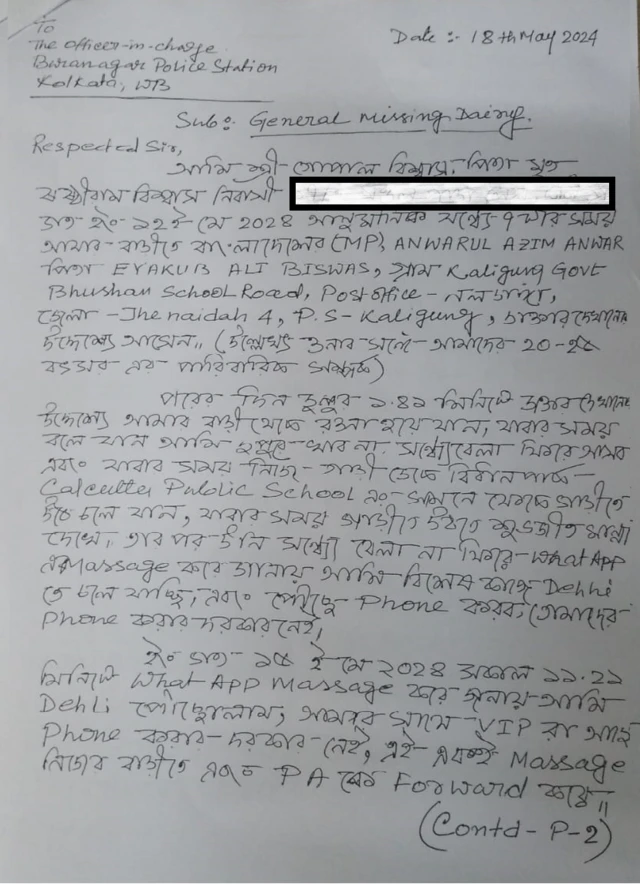 To
The officer-in-charge
Baranagar Police Station
Kolkata, WB
Date :- 18th May 2024
Sub: General Missing Dairy.
Respected Sir,
আমি শ্রী গোপাল বিশ্বাস, পিতা মৃত
বিশ্বাস নিবাসী
গত ইং ১২ই মে 2024 আনুমানিক সন্ধ্যে ৭ টার সময়
আমার বাড়ীতে বাংলাদেশের (MP) ANWARUL AZIM ANWAR
পিতা EYAKUB ALI BISWAS, গ্রাম Kaligung Govt
Bhushan School Road, Post office - নলডাঙ্গা,
জেলা - Jhenaidah 4, P.S - Kaligung, ডাক্তার দেখানোর
উদ্দেশ্যে আসেন।। (উল্লেখ্য ওনার সঙ্গে আমাদের 20-২৫
বৎসর এর পারিবারিক সম্পর্ক)
পরের দিন দুপুর ১.৪১ মিনিটে ডাক্তার দেখানোর
উদ্দেশ্যে আমার বাড়ী থেকে রওনা হয়ে যান, যাবার সময়
বলে যান আমি দুপুরে খাব না, সন্ধ্যেবেলা ফিরে আসব
এবং যাবার সময় নিজে গাড়ী ডেকে বিধান পার্ক
Calcutta Public School এর সামনে থেকে গাড়ীতে
উঠে চলে যান, যাবার সময় গাড়ীতে উঠতে শুভজীত মান্না
দেখে, তার পর উনি সন্ধ্যে বেলা না ফিরে What App
এ Massage করে জানায় আমি বিশেষ কাজে Dehli
তে চলে যাচ্ছি, এবং পৌঁছে Phone করব, তোমাদের
Phone করার দরকার নেই,
ইং গত ১৫ ই মে ২০২৪ সকাল ১১.২১
মিনিটে What App Massage করে জানায় আমি
Dehli পৌঁছোলাম, আমার সাথে VIP রা আছে
Phone করার দরকার নেই, এই একই Massage
নিজের বাড়ীতে এবং PA কে Forward করে।।
(Contd - P - 2)